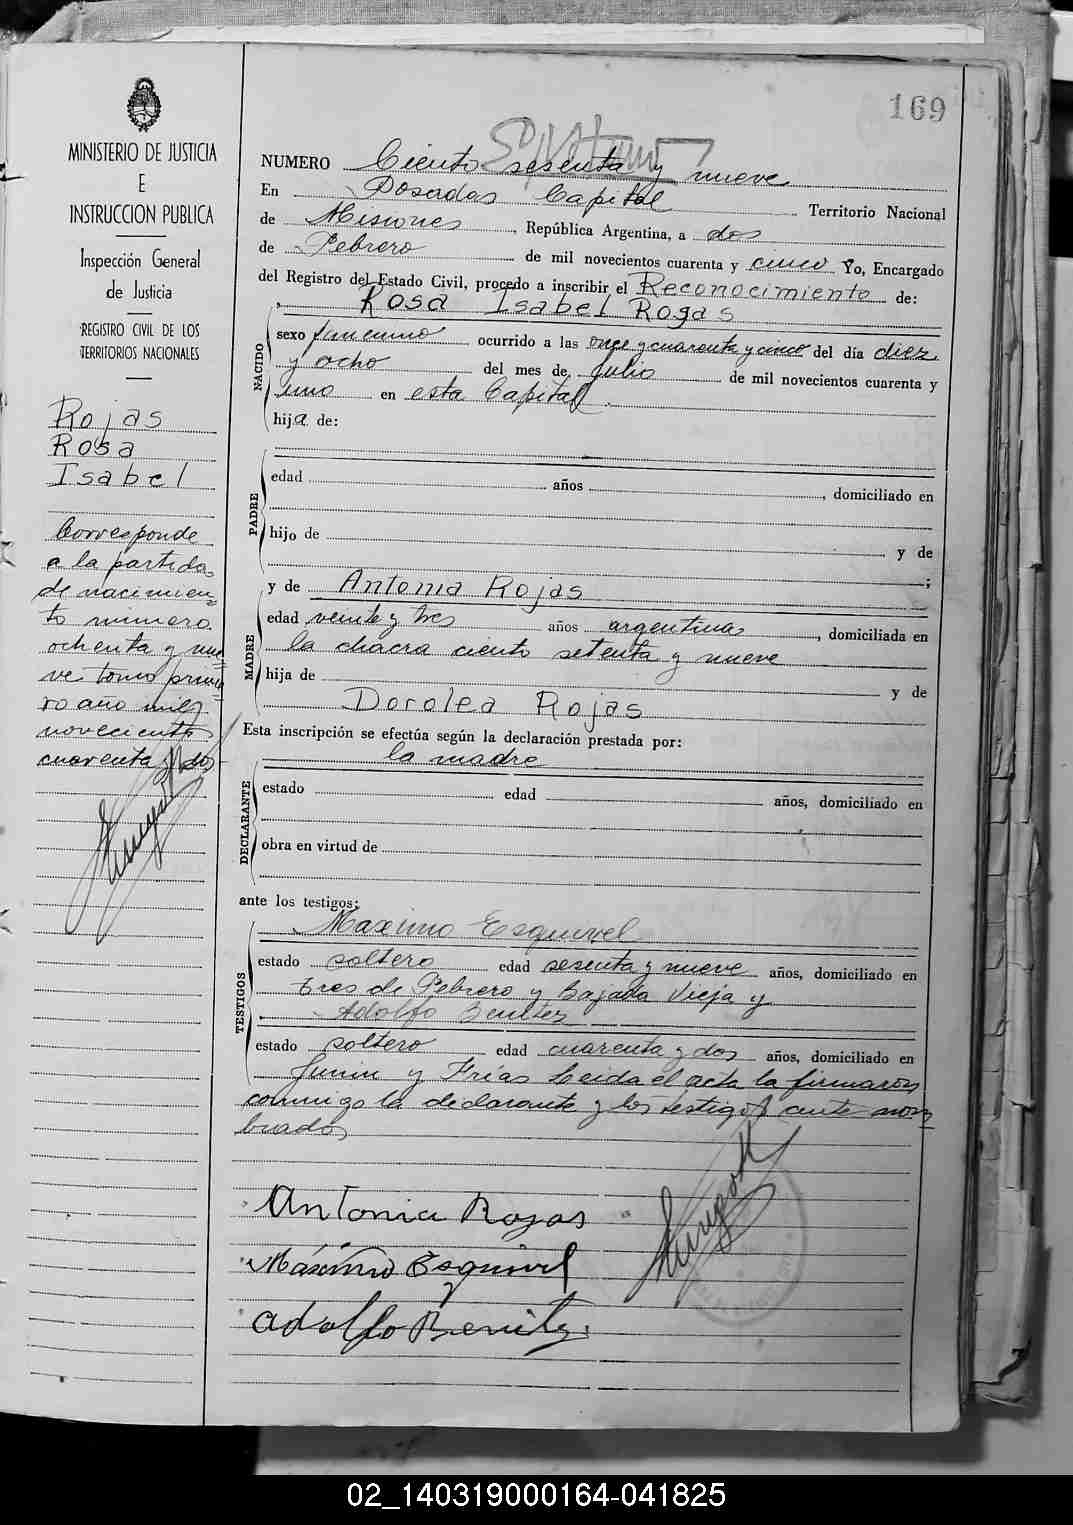 169
MINISTERIO DE JUSTICIA
E
INSTRUCCION PUBLICA
Inspección General
de Justicia
REGISTRO CIVIL DE LOS
TERRITORIOS NACIONALES
Rojas
Rosa
Isabel
Corresponde
a la partida
de nacimien-
to número
ochenta y nue
ve tomo prime
ro año mil
novecientos
cuarenta y dos
NUMERO Ciento sesenta y nueve
En Posadas Capital Territorio Nacional
de Misiones, República Argentina, a dos
de Febrero de mil novecientos cuarenta y cinco Yo, Encargado
del Registro del Estado Civil, procedo a inscribir el Reconocimiento de:
Rosa Isabel Rojas
NACIDO
sexo femenino ocurrido a las once y cuarenta y cinco del día diez
y ocho del mes de Julio de mil novecientos cuarenta y
uno en esta Capital.
hija de:
PADRE
edad años , domiciliado en
hijo de y de
;
y de Antonia Rojas
MADRE
edad veinte y tres años argentina, domiciliada en
la chacra ciento setenta y nueve
hija de y de
Dorotea Rojas
Esta inscripción se efectúa según la declaración prestada por:
la madre
DECLARANTE
estado edad años, domiciliado en
obra en virtud de
ante los testigos:
Maximo Esquivel
TESTIGOS
estado soltero edad sesenta y nueve años, domiciliado en
tres de Febrero y Bajada Vieja y
Adolfo Benitez
estado soltero edad cuarenta y dos años, domiciliado en
Junin y Frías Leida el acta la firmaron
conmigo la declarante y los testigos ante nom
brados
Antonia Rojas
Máximo Esquivel
Adolfo Benitez
02_140319000164-041825